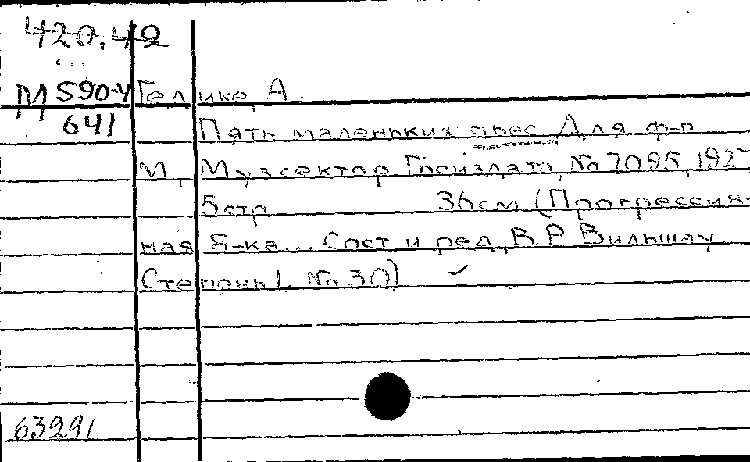 420.42
М 590-4 Гедике, А.
641 Пять маленьких пьес Для ф-п
М., Музсектор Госиздата, No 7095, 192
5 стр 36 см (Прогрессив-
ная б-ка... Сост и ред В Р Вильшау
Степень I. No 30)
63291